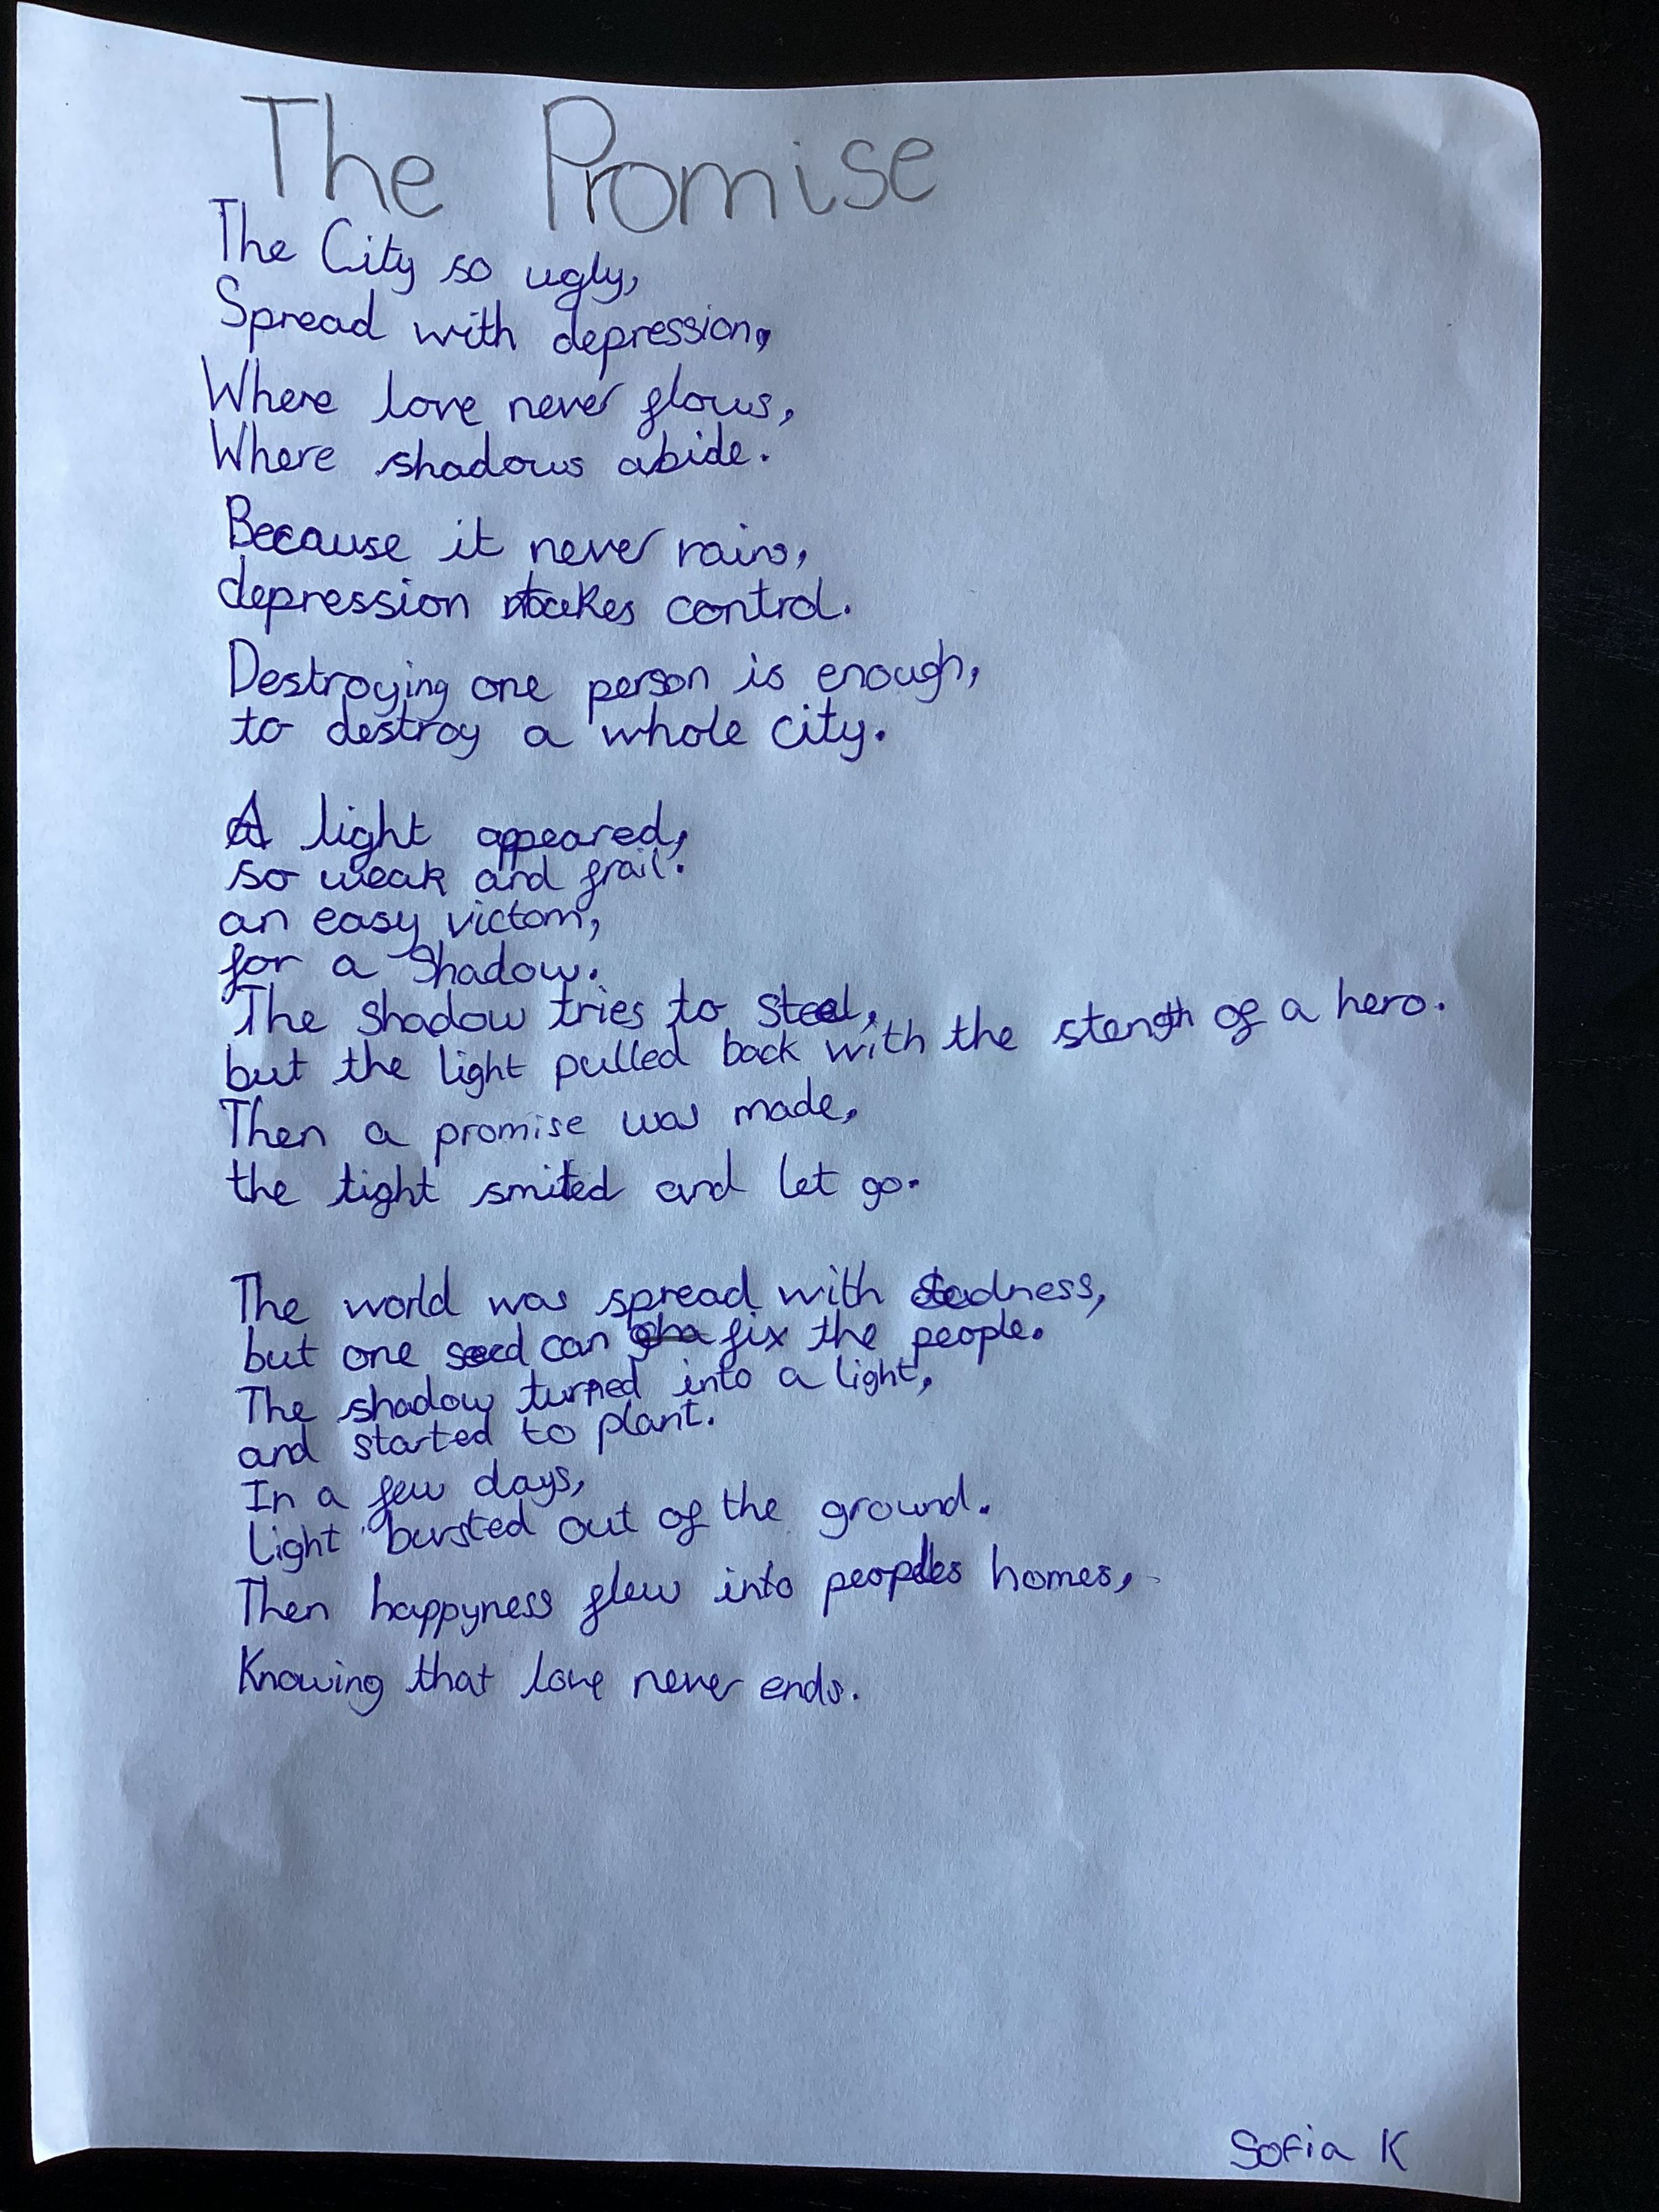 The Promise
The City so ugly,
Spread with depression,
Where love never flows,
Where shadows abide.
Because it never rains,
depression takes control.
Destroying one person is enough,
to destroy a whole city.
A light appeared,
so weak and frail.
an easy victom,
for a Shadow.
The shadow tries to steel,
but the light pulled back with the stength of a hero.
Then a promise was made,
the light smiled and let go.
The world was spread with sadness,
but one seed can fix the people.
The shadow turned into a light,
and started to plant.
In a few days,
Light bursted out of the ground.
Then happyness flew into peoples homes,
Knowing that love never ends.
Sofia K